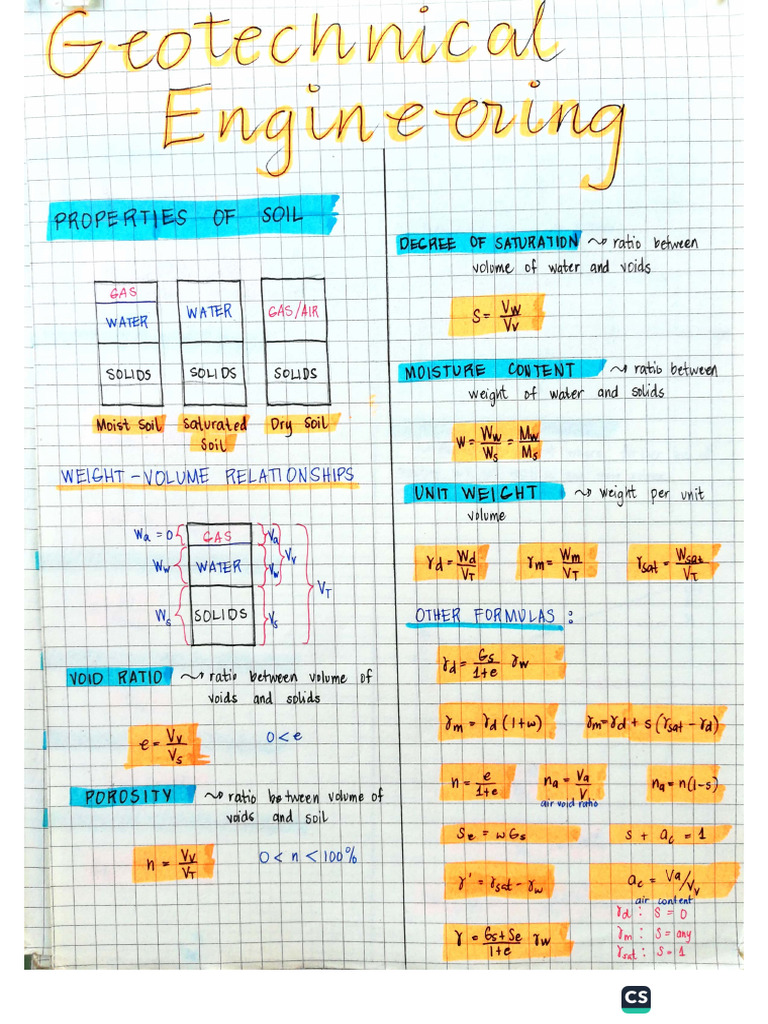 Geotechnical
Engineering
PROPERTIES OF SOIL
GAS
WATER
SOLIDS
Moist Soil
WATER
SOLIDS
Saturated
Soil
GAS/AIR
SOLIDS
Dry Soil
WEIGHT-VOLUME RELATIONSHIPS
Wa = 0
Ww
Ws
GAS
WATER
SOLIDS
Va
Vw
Vs
Vv
VT
VOID RATIO ~> ratio between volume of
voids and solids
e = Vv/Vs
0 < e
POROSITY ~> ratio between volume of
voids and soil
n = Vv/VT
0 < n < 100%
DEGREE OF SATURATION ~> ratio between
volume of water and voids
S = Vw/Vv
MOISTURE CONTENT ~> ratio between
weight of water and solids
W = Ww/Ws = Mw/Ms
UNIT WEIGHT ~> weight per unit
volume
γd = Wd/VT
γm = Wm/VT
γsat = Wsat/VT
OTHER FORMULAS :
γd = Gs/1+e γw
γm = γd (1+w)
γm = γd + s (γsat - γd)
n = e/1+e
na = Va/V
air void ratio
na = n(1-s)
Se = wGs
s + ac = 1
γ' = γsat - γw
ac = Va/Vv
air content
γ = Gs+Se/1+e γw
γd : S = 0
γm : S = any
γsat : S = 1
CS